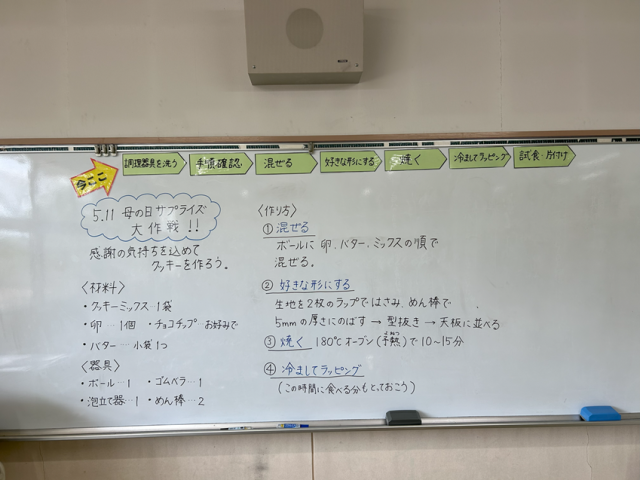 今ここ
調理器具を洗う
手順確認
混ぜる
好きな形にする
焼く
冷ましてラッピング
試食・片付け
5.11 母の日サプライズ
大作戦!!
感謝の気持ちを込めて
クッキーを作ろう。
〈材料〉
・クッキーミックス…1袋
・卵…1個 ・チョコチップ お好みで
・バター…小袋1つ
〈器具〉
・ボール…1 ・ゴムベラ…1
・泡立て器…1 ・めん棒…2
〈作り方〉
① 混ぜる
ボールに 卵、バター、ミックスの順で
混ぜる。
② 好きな形にする
生地を2枚のラップではさみ、めん棒で
5mmの厚さにのばす → 型抜き → 天板に並べる
③ 焼く 180℃オーブン(予熱)で10〜15分
④ 冷ましてラッピング
(この時間に食べる分もとっておこう)